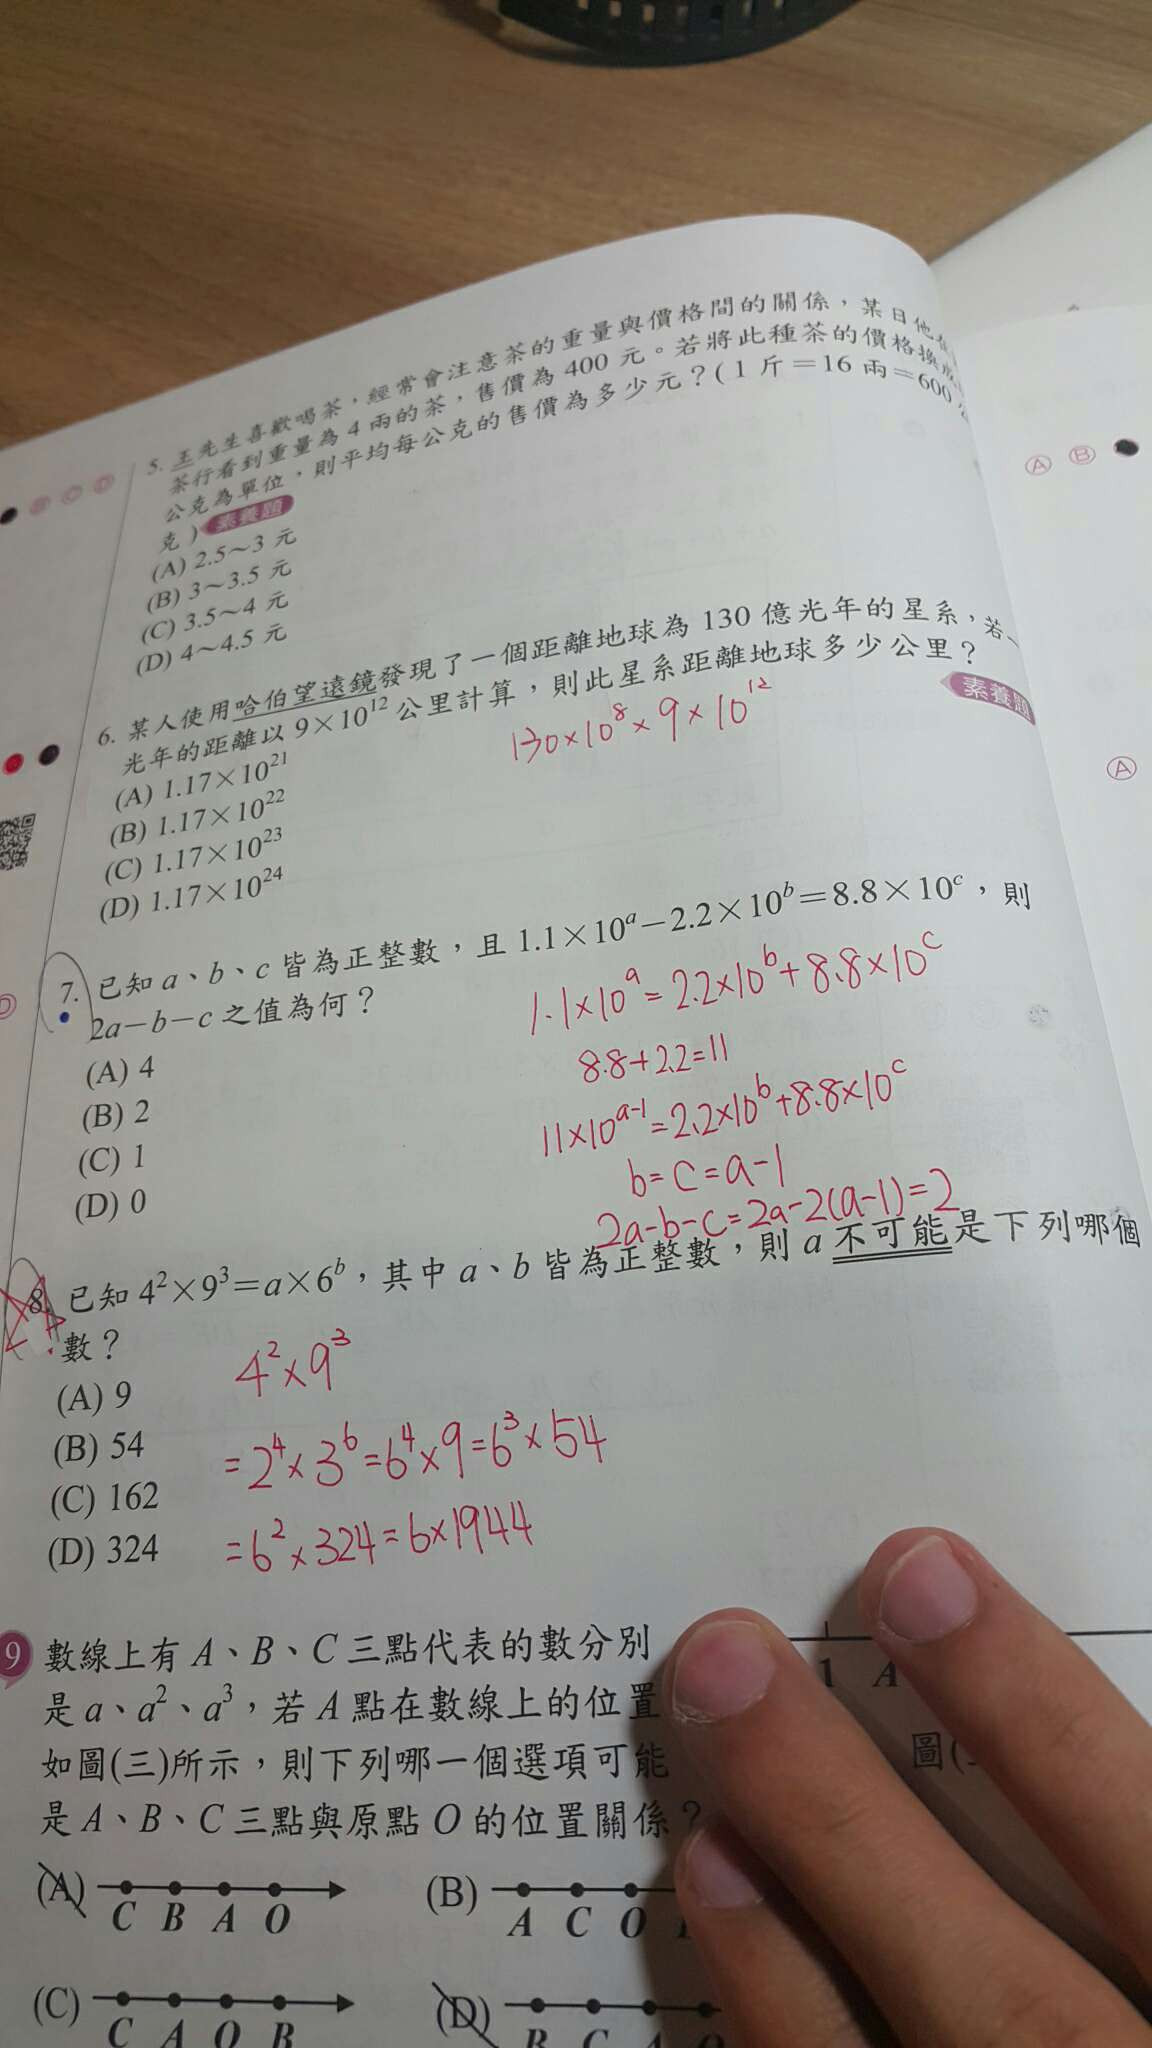 5. 王先生喜歡喝茶,經常會注意茶的重量與價格間的關係,某日他在
茶行看到重量為 4 兩的茶,售價為 400 元。若將此種茶的價格換成
公克為單位,則平均每公克的售價為多少元?(1 斤=16 兩=600 公
克) 素養題
(A) 2.5~3 元
(B) 3~3.5 元
(C) 3.5~4 元
(D) 4~4.5 元
6. 某人使用哈伯望遠鏡發現了一個距離地球為 130 億光年的星系,若一
光年的距離以 9×10¹² 公里計算,則此星系距離地球多少公里?
素養題
130×10⁸×9×10¹²
(A) 1.17×10²¹
(B) 1.17×10²²
(C) 1.17×10²³
(D) 1.17×10²⁴
7. 已知 a、b、c 皆為正整數,且 1.1×10ᵃ-2.2×10ᵇ=8.8×10ᶜ,則
2a-b-c 之值為何?
(A) 4
(B) 2
(C) 1
(D) 0
1.1×10ᵃ=2.2×10ᵇ+8.8×10ᶜ
8.8+2.2=11
11×10ᵃ⁻¹=2.2×10ᵇ+8.8×10ᶜ
b=c=a-1
2a-b-c=2a-2(a-1)=2
8. 已知 4²×9³=a×6ᵇ,其中 a、b 皆為正整數,則 a 不可能是下列哪個
數?
(A) 9
(B) 54
(C) 162
(D) 324
4²×9³
=2⁴×3⁶=6⁴×9=6³×54
=6²×324=6×1944
9 數線上有 A、B、C 三點代表的數分別
是 a、a²、a³,若 A 點在數線上的位置
如圖(三)所示,則下列哪一個選項可能
是 A、B、C 三點與原點 O 的位置關係?
1 A
圖(
(A) C B A O
(B) A C O
(C) C A O B
(D) B C A O
A B
A